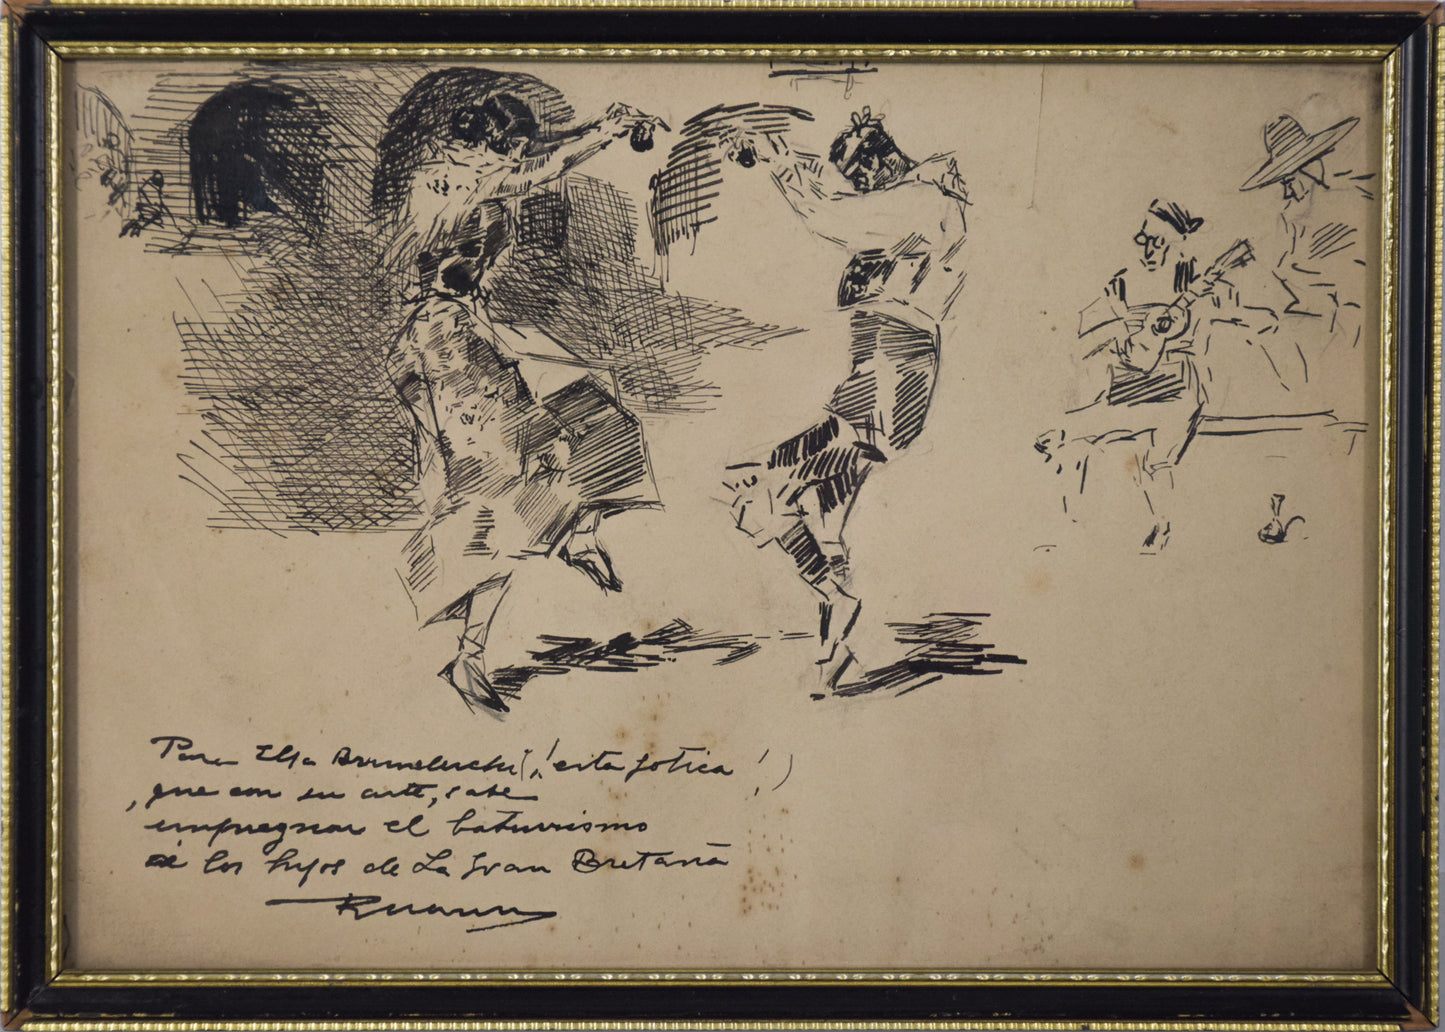 Para Elsa (¡esta gotica!)
, que con su arte, sabe
impregnar el baturrismo
a los hijos de La Gran Bretaña